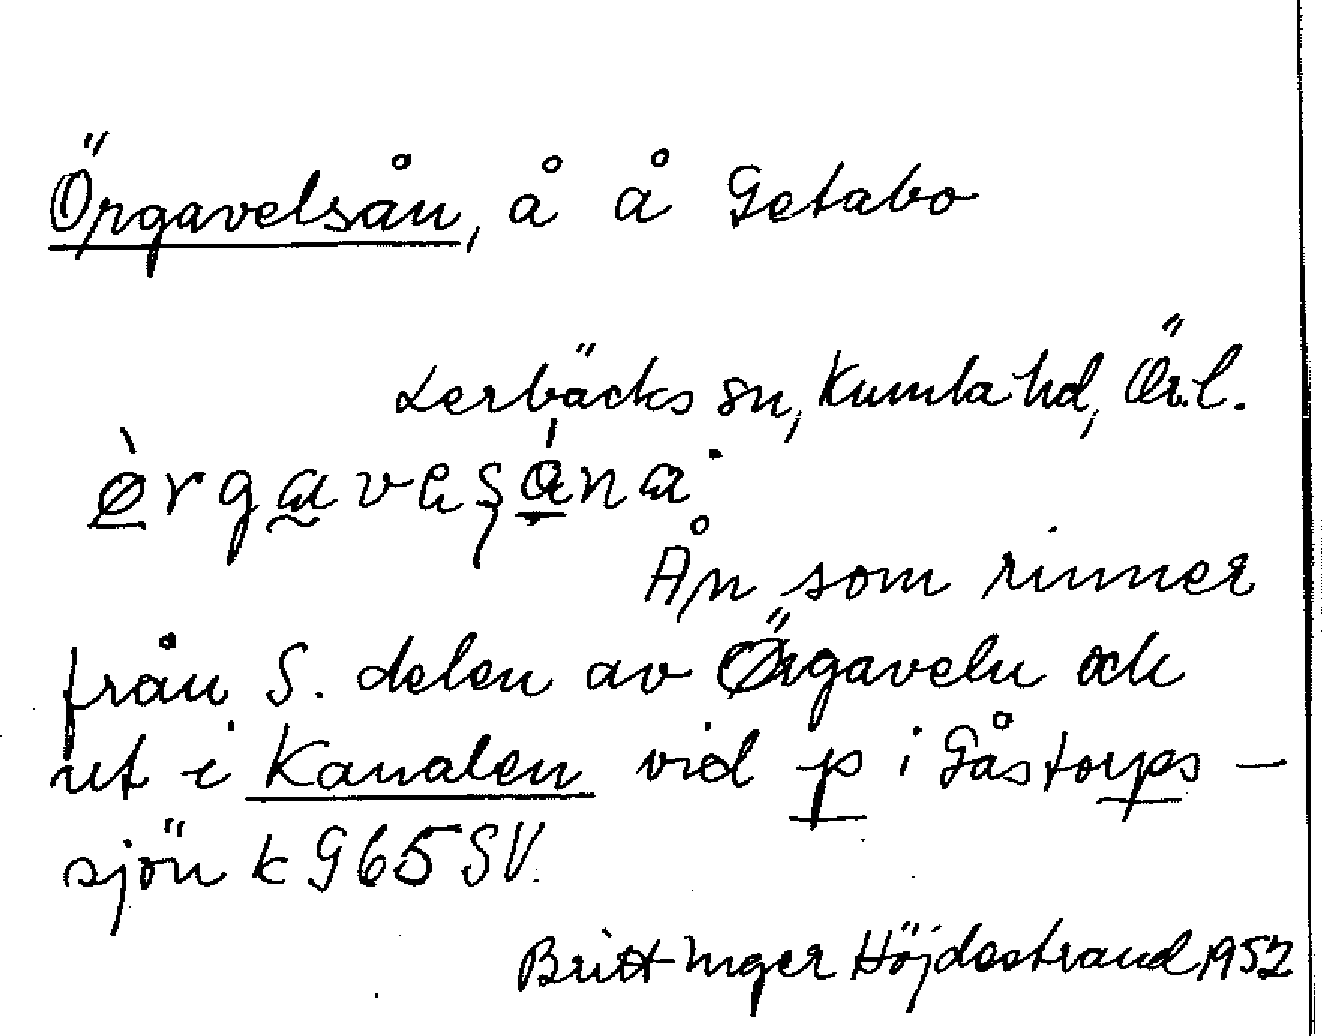 Örgavelsån, å å Getabo
Lerbäcks sn, Kumla hd, Ör.l.
ø̀rgavesåna.
Ån som rinner
från S. delen av Örgaveln och
ut i Kanalen vid p i Gåstorps-
sjön k G65SV.
Britt Inger Höjdestrand 1952